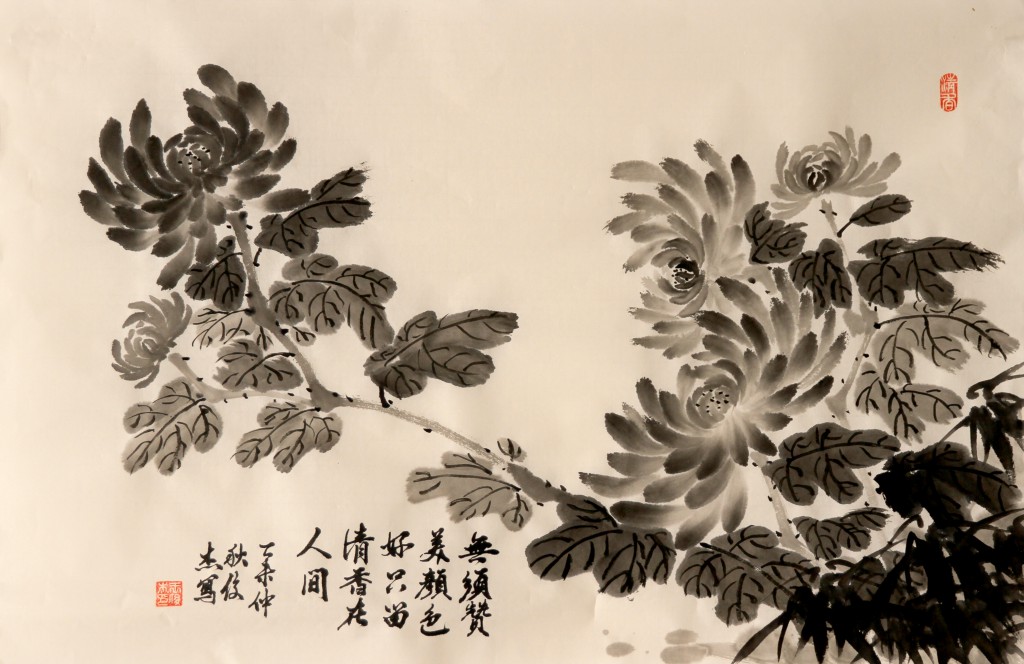 清香
無須贊
美顏色
好只留
清香在
人間
丁仲
秋俊
杰寫